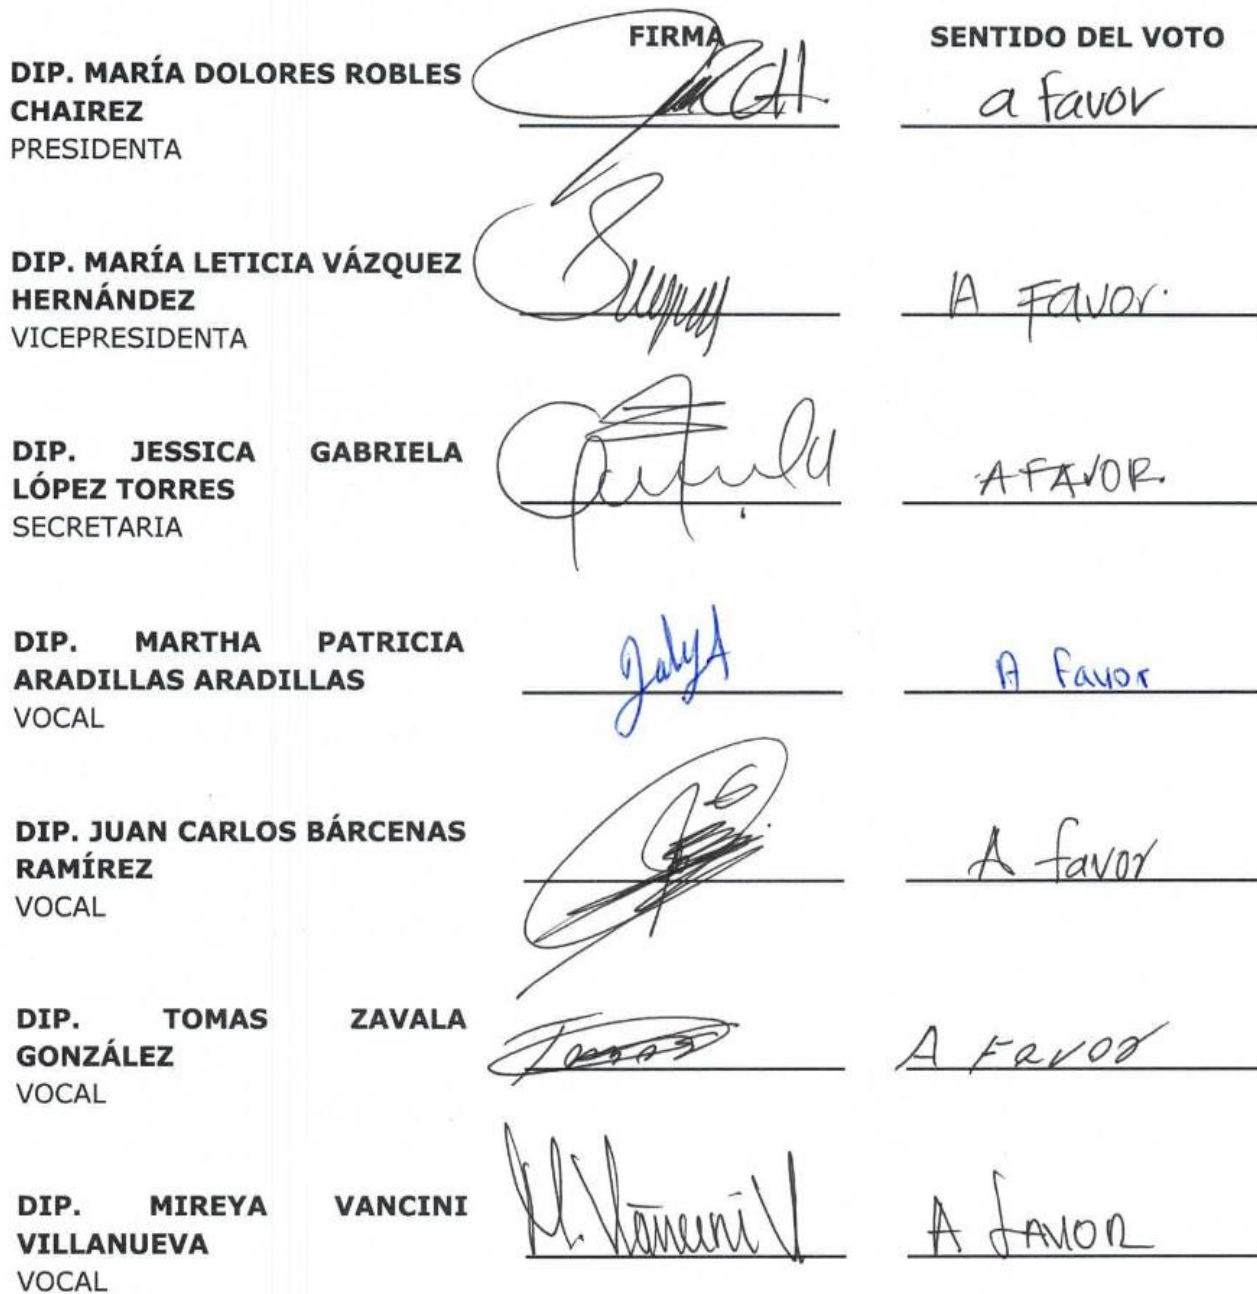 FIRMA SENTIDO DEL VOTO
DIP. MARÍA DOLORES ROBLES
CHAIREZ
PRESIDENTA
a favor
DIP. MARÍA LETICIA VÁZQUEZ
HERNÁNDEZ
VICEPRESIDENTA
A Favor.
DIP. JESSICA GABRIELA
LÓPEZ TORRES
SECRETARIA
A FAVOR.
DIP. MARTHA PATRICIA
ARADILLAS ARADILLAS
VOCAL
A Favor
DIP. JUAN CARLOS BÁRCENAS
RAMÍREZ
VOCAL
A favor
DIP. TOMAS ZAVALA
GONZÁLEZ
VOCAL
A Favor
DIP. MIREYA VANCINI
VILLANUEVA
VOCAL
M. Vancini V
A FAVOR